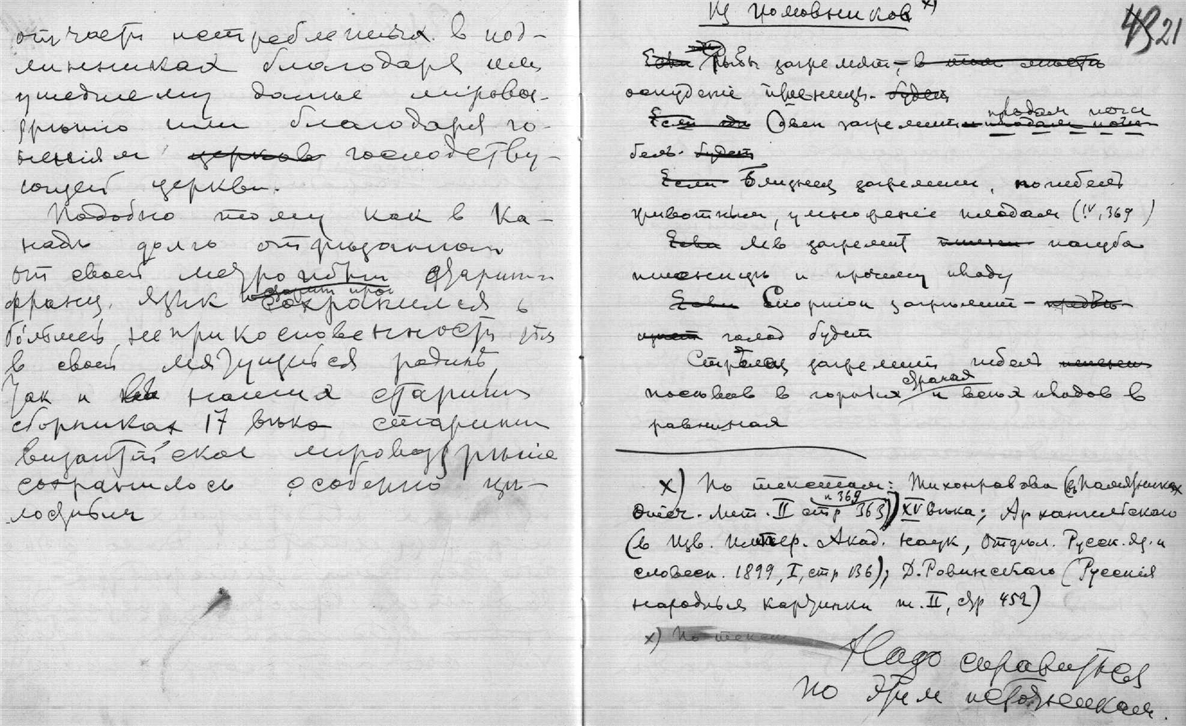 отчасти истребленных в под-
линниках благодаря им
ушедшему далье мирово-
зрѣнію или благодаря го-
неніям церков господству-
ющей церкви.
Подобно тому как в Ка-
надѣ долго отрѣзанной
от своей метрополіи старин.
франц. язык сохранился в
большей неприкосновенности, чѣм
в своей мятущейся родинѣ,
так и в наших старинных
сборниках 17 вѣка старинное
византійское міровоззрѣніе
сохранилось особенно цѣ-
лостным
Из громовников x)
43 21
Если Рыбы загремят, в том мѣстѣ
оскудѣніе пшеницы. будет
Если Овен загремит
бель. будет
Если Близнец загремит, погибель
животным, умноженіе плодам (IV, 369)
Если Лев загремит пшениц пагуба
пшеницы и прочему плоду
Если Скорпіон загремит –
голод будет
Стрѣлец загремит гибель пшениц
посѣвов в горных странах и всѣх плодов в
равнинах
x) По текстам: Тихонравова (в Памятниках
отреч. лит. II стр 363 и 369) XV вѣка; Архангельскаго
(в Изв. Импер. Акад. Наук, Отдѣл. Русск. яз. и
словесн. 1899, I, стр 136); Д. Ровинскаго (Русскія
народныя картинки т. II, стр 452)
x) По текстам
Надо справиться
по этим источникам.